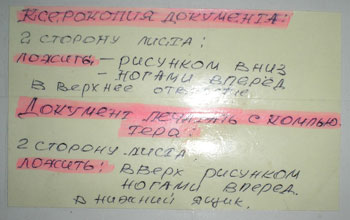 Ксерокопия документа:
2 сторону листа:
ложить, - рисунком вниз
- ногами вперёд
в верхнее отвестие
Документ печатать с компью
тера:
2 сторону листа.
ложить: вверх рисунком
ногами вперёд.
в нижний ящик.